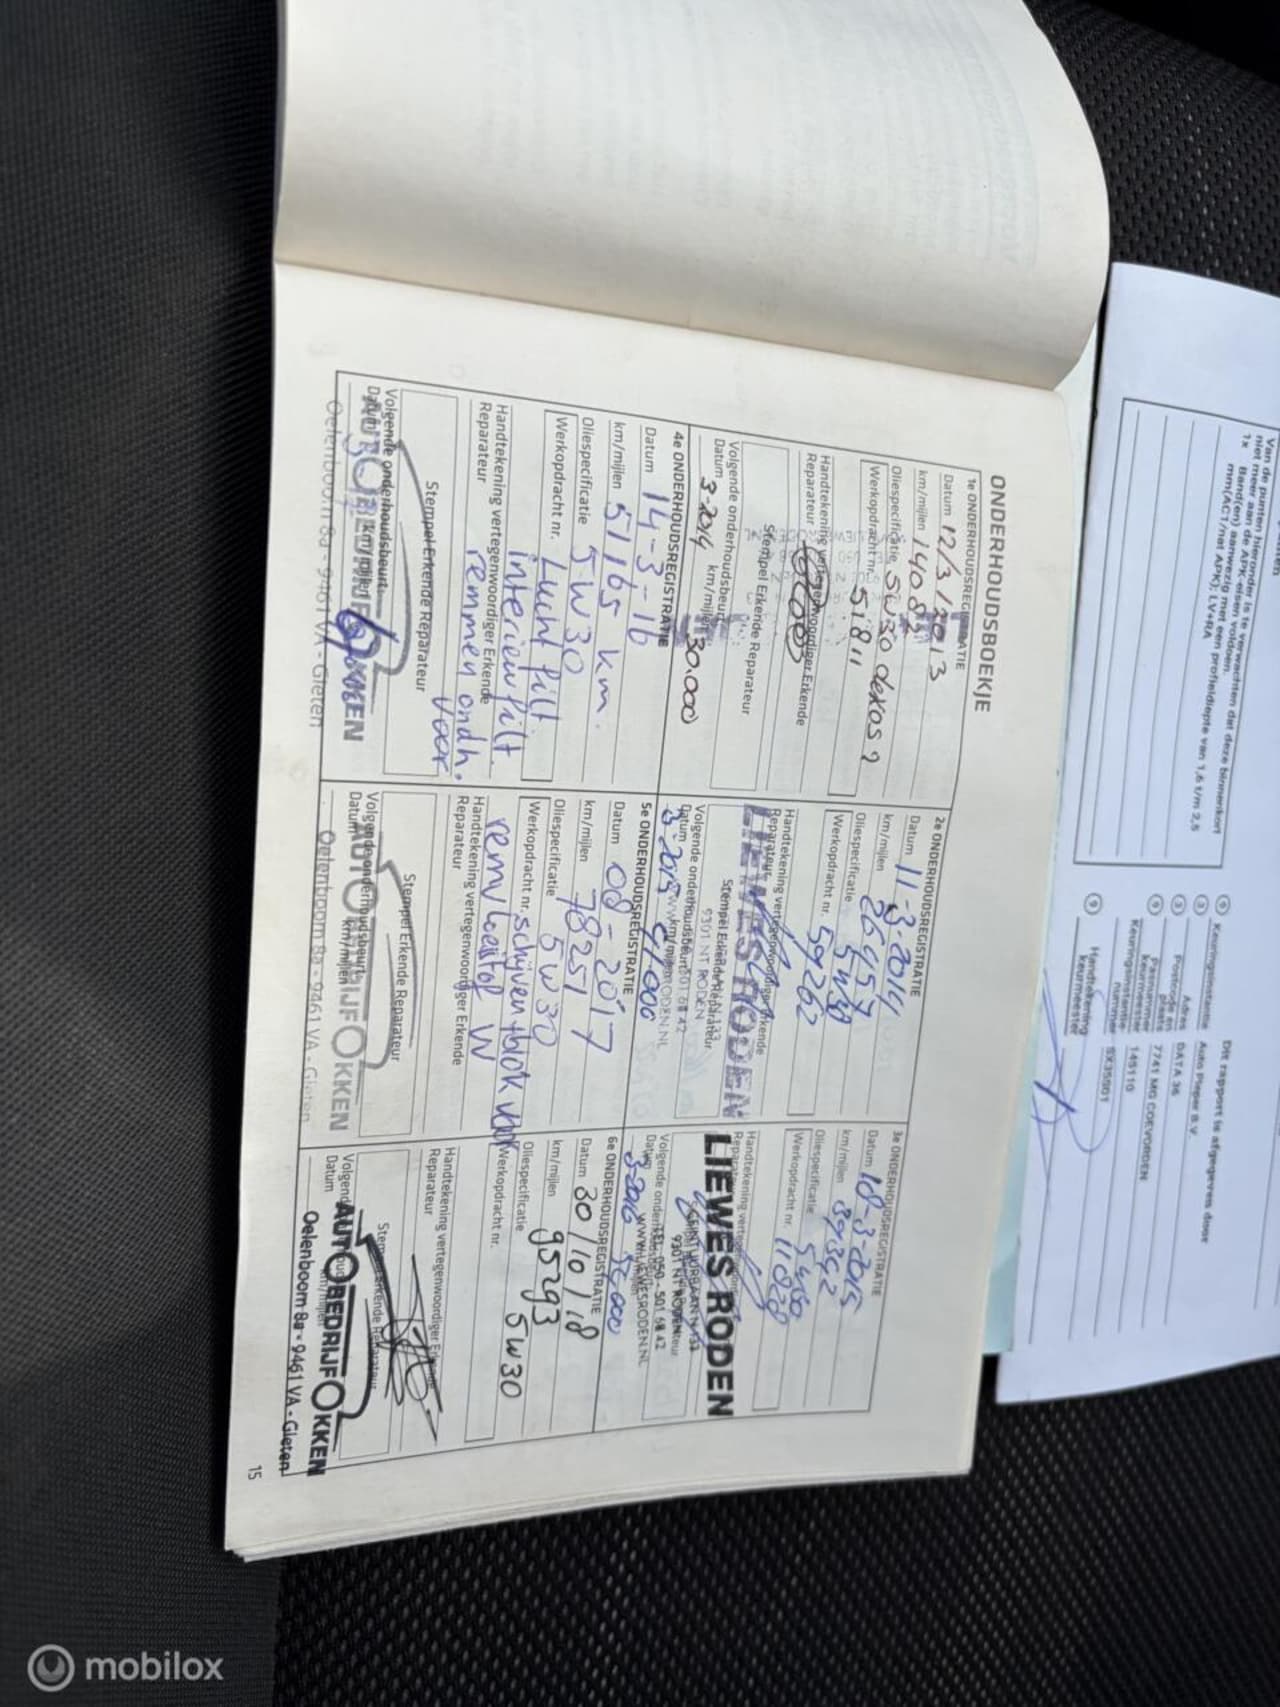 ONDERHOUDSBOEKJE
1e ONDERHOUDSREGISTRATIE
Datum 12/3/2013
km/mijlen 1408
Oliespecificatie 5W30 dexos 2
Werkopdracht nr. 51811
Handtekening vertegenwoordiger Erkende
Reparateur
Stempel Erkende Reparateur
Volgende onderhoudsbeurt
Datum km/mijlen
3-2014 30.000
2e ONDERHOUDSREGISTRATIE
Datum 11-3-2014
km/mijlen 26457
Oliespecificatie 5W30
Werkopdracht nr. 59262
Handtekening vertegenwoordiger Erkende
Reparateur
LIEWES RODEN
Stempel Erkende Reparateur
9301 NT RODEN
Volgende onderhoudsbeurt
Datum km/mijlen
3-2015
3e ONDERHOUDSREGISTRATIE
Datum 18-3-2015
km/mijlen 39342
Oliespecificatie 5W30
Werkopdracht nr. 11828
Handtekening
Reparateur
LIEWES RODEN
CEINTUURBAAN N 133
9301 NT RODEN
TEL. 050 - 501 68 42
WWW.LIEWESRODEN.NL
Volgende
Datum
3-2016
4e ONDERHOUDSREGISTRATIE
Datum 14-3-16
km/mijlen 51165 km.
Oliespecificatie 5W30
Werkopdracht nr. Lucht filt
interieur filt.
Handtekening vertegenwoordiger Erkende
Reparateur
remmen ondh.
voor
Stempel Erkende Reparateur
Volgende onderhoudsbeurt
Datum km/mijlen
AUTOBEDRIJF OKKEN
Oelenboom 8a - 9461 VA - Gieten
5e ONDERHOUDSREGISTRATIE
Datum 08-2017
km/mijlen 78251
Oliespecificatie 5W30
Werkopdracht nr. schijven + blok voor
remvloeistof
Handtekening vertegenwoordiger Erkende
Reparateur
Stempel Erkende Reparateur
Volgende onderhoudsbeurt
Datum km/mijlen
AUTOBEDRIJF OKKEN
Oelenboom 8a - 9461 VA - Gieten
6e ONDERHOUDSREGISTRATIE
Datum 30/10/18
km/mijlen 95293
Oliespecificatie 5W30
Werkopdracht nr.
Handtekening vertegenwoordiger
Reparateur
Volgende
Datum
AUTOBEDRIJF OKKEN
Oelenboom 8a - 9461 VA - Gieten
15
Van de punten hieronder is te verwachten dat deze binnenkort
niet meer aan de APK-eisen voldoen.
1x Band(en) aanwezig met een profieldiepte van 1,6 t/m 2,5
mm(ACT/nat APK): LV+RA
Dit rapport is afgegeven door
Keuringsinstantie Auto Pieper B.V
Adres DATA 36
Postcode en plaats 7741 MG COEVORDEN
Pasnummer keurmeester 145110
Keuringsinstantie nummer
Handtekening keurmeester
mobilox